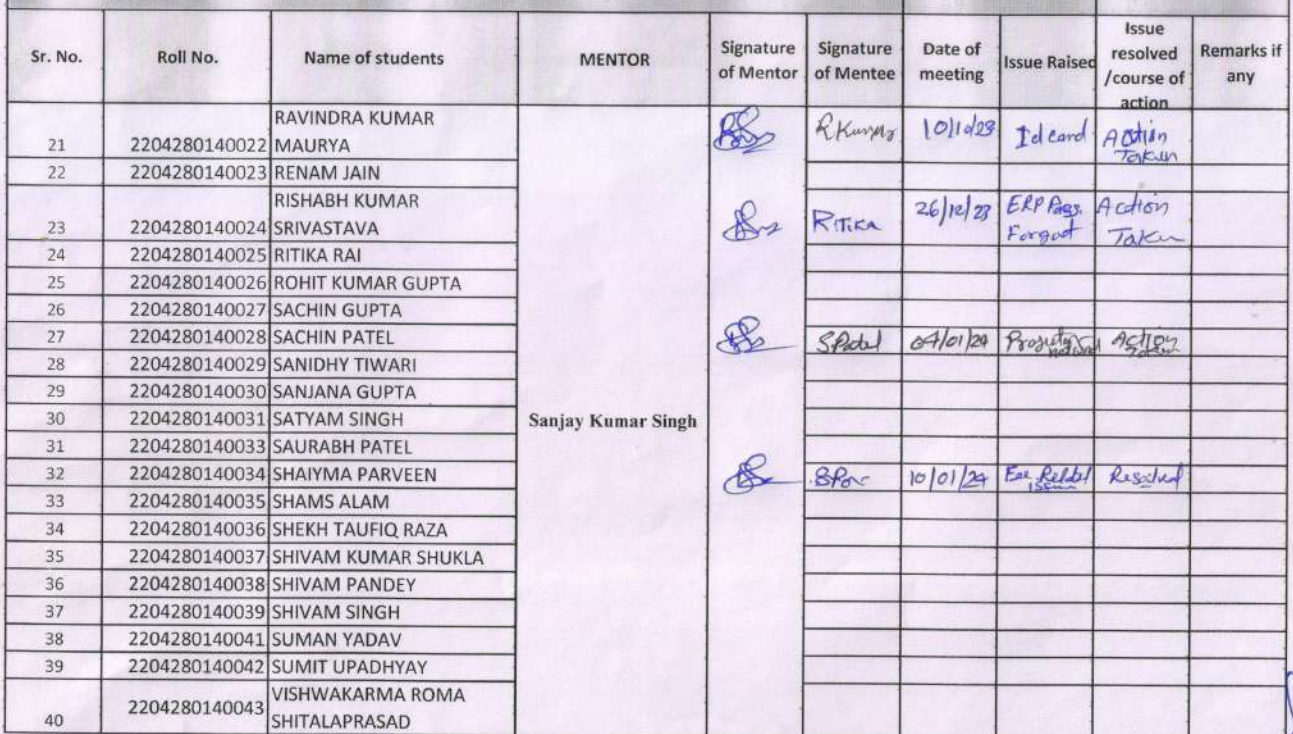 Sr. No. Roll No. Name of students MENTOR Signature of Mentor Signature of Mentee Date of meeting Issue Raised Issue resolved /course of action Remarks if any
RAVINDRA KUMAR
21 2204280140022 MAURYA 10/10/23 Id card Action Taken
22 2204280140023 RENAM JAIN
RISHABH KUMAR
23 2204280140024 SRIVASTAVA Ritika 26/12/23 ERP Forgot Action Taken
24 2204280140025 RITIKA RAI
25 2204280140026 ROHIT KUMAR GUPTA
26 2204280140027 SACHIN GUPTA
27 2204280140028 SACHIN PATEL SPatel 04/01/24 Action
28 2204280140029 SANIDHY TIWARI
29 2204280140030 SANJANA GUPTA
30 2204280140031 SATYAM SINGH Sanjay Kumar Singh
31 2204280140033 SAURABH PATEL
32 2204280140034 SHAIYMA PARVEEN 10/01/24 Issue Resolved
33 2204280140035 SHAMS ALAM
34 2204280140036 SHEKH TAUFIQ RAZA
35 2204280140037 SHIVAM KUMAR SHUKLA
36 2204280140038 SHIVAM PANDEY
37 2204280140039 SHIVAM SINGH
38 2204280140041 SUMAN YADAV
39 2204280140042 SUMIT UPADHYAY
VISHWAKARMA ROMA
40 2204280140043 SHITALAPRASAD